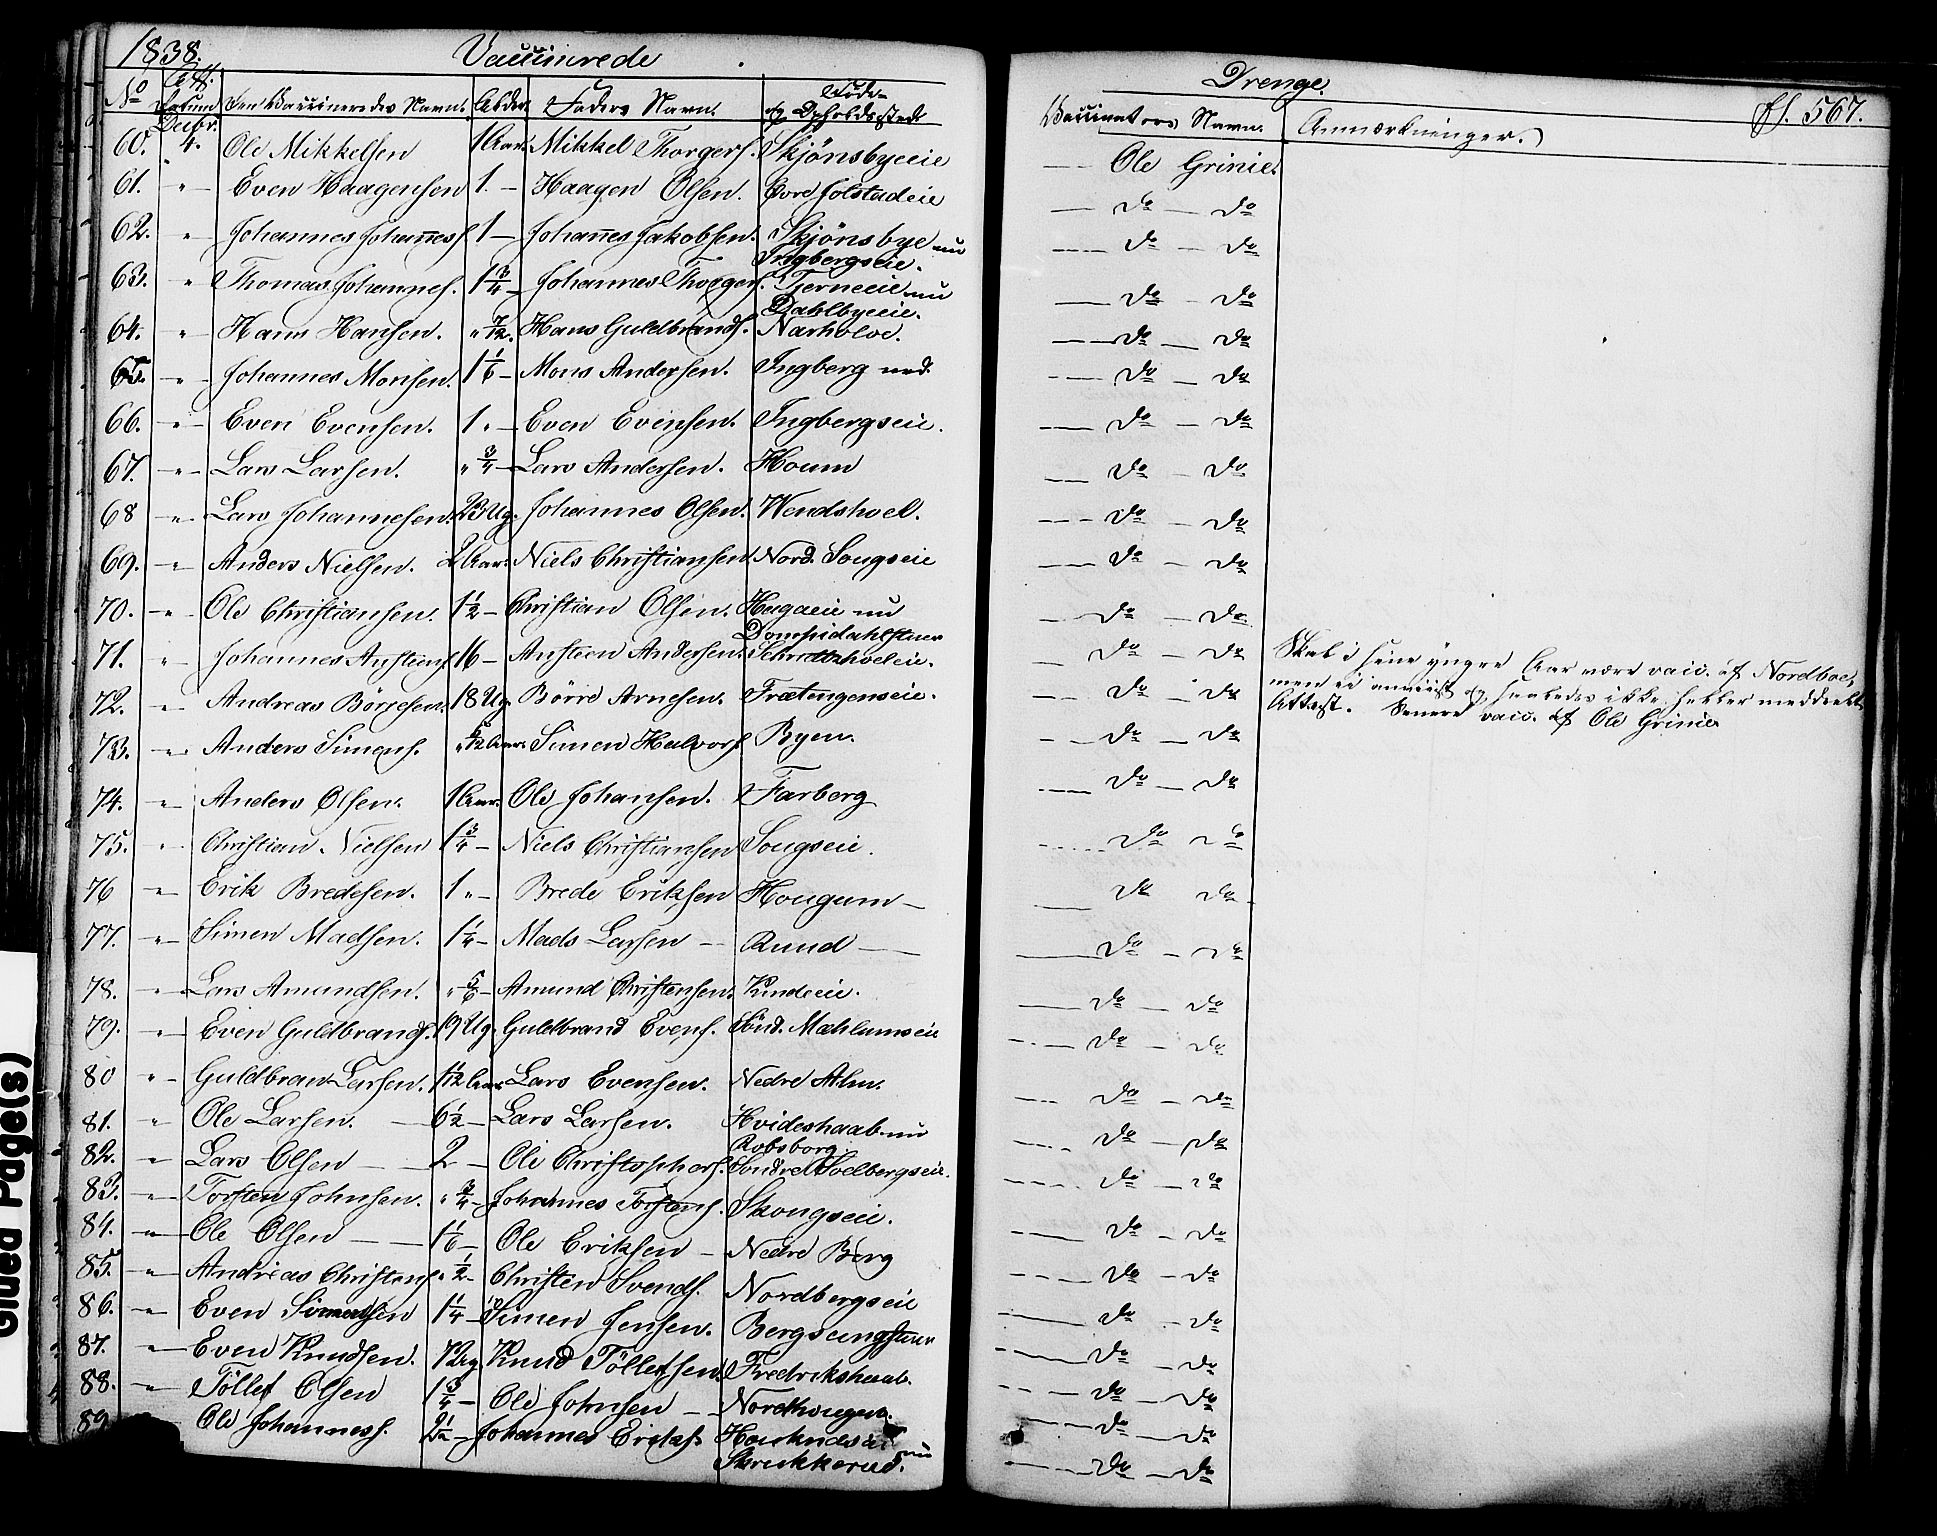 1838. Vaccinerede Drenge. ff. 567.
No Att. Datum Den Vaccineredes Navn. Alder. Faders Navn. Føde- og Opholdssted. Vaccinators Navn. Anmærkninger.
Decbr.
60. 4. Ole Mikkelsen 1 Aar. Mikkel Thorgers. Skjönsbyeeie — Ole Grinie.
61. " — Even Haagensen 1. — Haagen Olsen. Øvre Jolstadeie — do — do
62. " Johannes Johanness. 1 — Johannes Jakobsen. Skjönsbye nu Ingbergseie. — do — do
63. " Thomas Johannes. 1 3/4 — Johannes Thorgers. Tjerneeie nu Dahlbyeeie. — do — do
64. " Hans Hansen. " 7/12. Hans Guldbrands. Narholoe. — do — do
65. " — Johannes Monsen. 1 1/6 — Mons Andersen. Ingberg ned. — do — do
66. " — Even Evensen. 1 " — Even Evensen. Ingbergseie. — do — do
67. " — Lars Larsen. " 3/4 — Lars Andersen. Houm — do — do
68 " — Lars Johannesen. 23 Ug. Johannes Olsen. Wendshoel. — do — do
69. — " Anders Nielsen. 2 Aar. Niels Christiansen Nord. Sougseie — do — do
70. — " — Ole Christiansen. 1 1/2 — Christian Olsen. Hagaeie nu — do — do
Dompidahlstuen
71. " — Johannes Anstens. 16 — Ansteen Andersen. — do — do Skal i sine yngre Aar være vacc. af Nordboe,
72. " — Andreas Börresen. 18 Ug. Börre Arnesen. Frætengenseie. — do — do men ei anviist og havdes ikke heller meddeelt
Attest. Senere vacc. af Ole Grinie
73. " — Anders Simens. " 5/12 Aar. Simen Halvors. Byen. — do — do
74. " — Anders Olsen. 1 Aar. Ole Johansen. Farberg — do — do
75. " Christian Nielsen 1 3/4 — Niels Christiansen Sougseie. — do do
76 " — Erik Bredesen. 1 " — Brede Eriksen Hougum — — do do
77. " — Simen Madsen. 1 1/4 — Mads Larsen — Ruud — — do — do
78. " — Lars Amundsen. " 5/6 — Amund Christensen. Rudeeie. — do — do
79. " — Even Guldbrands. 19 Ug. Guldbrand Evens. Sönd. Mæhlumseie — do — do
80 " — Guldbran Larsen. 1 1/12 Aar. Lars Evensen. Nedre Alm. — do — do
81. " Ole Larsen. — 6 1/2 — Lars Larsen. Hvideshaab nu Robsborg — do — do
82. " — Lars Olsen — 2 — Ole Christophers. Söndre Soelbergseie. — do — do
83. " — Torsten Johnsen. " 3/4 — Johannes Torstens. Skougseie. — do — do
84. " — Ole Olsen — 1 1/6 — Ole Eriksen — Nedre Berg — do — do
85. " — Andreas Christens. " 1/2 — Christen Svends. Nordbergseie — do — do
86. " — Even Simensen 1 1/4 — Simen Jensen. Bergsengstuen — do — do
87. " — Even Knudsen. Knud Töllefsen. Fredrikshaab. — do — do
88. " — Töllef Olsen 1 3/4 — Ole Johnsen — Nordhougen. — do — do
89 Ole Johanness. 2 1/2 — Johannes nu Skrukkerud. — do — do
Glued Page(s)